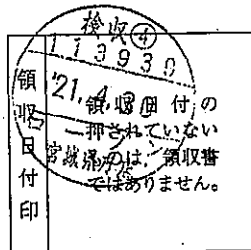 検収④
113930
'21.4.30
宮城県
領収日付印
領収日付の
押されていない
のは、領収書
ではありません。